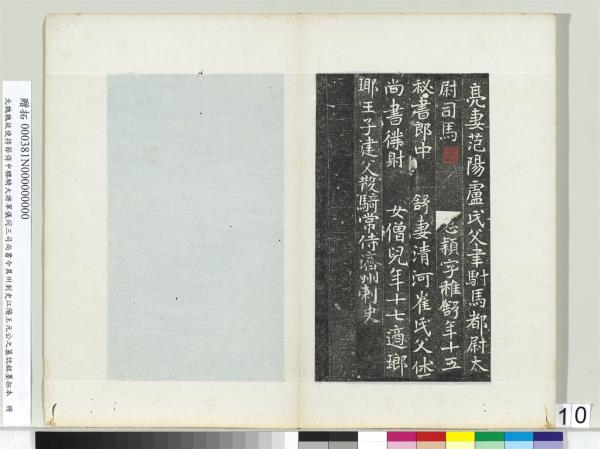 亮妻范陽盧氏父聿駙馬都尉太
尉司馬 息穎字稚舒年十五
秘書郎中 舒妻清河崔氏父休
尚書僕射 女僧兒年十七適瑯
耶王子建父散騎常侍濟州刺史
贈拓 000381N000000000
元魏魏故使持節侍中驃騎大將軍儀同三司尚書令冀州刺史江陽王元公之墓誌銘墨拓本 冊
10